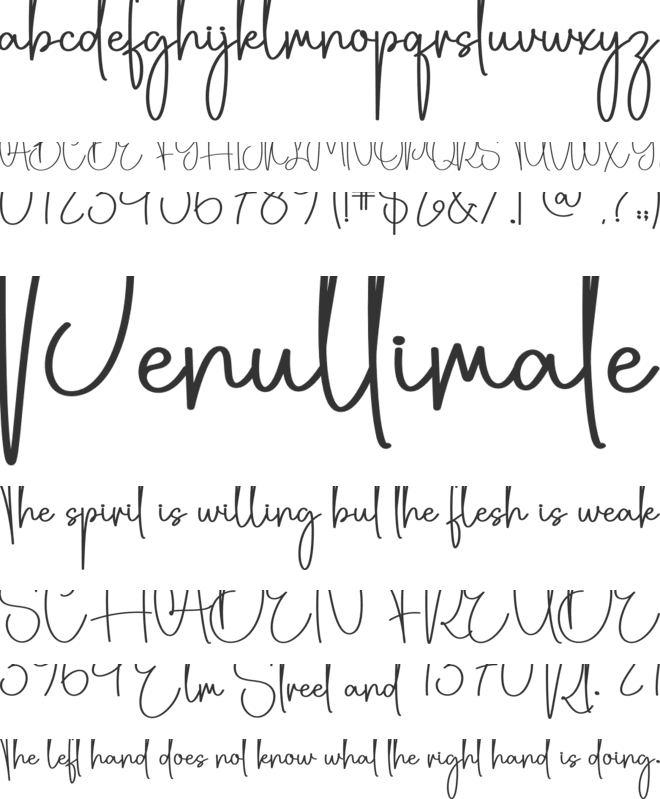 abcdefghijklmnopqrstuvwxyz
ABCDE FGHIJKLMNOPQRS TUVWXYZ
0123456789 (!#$ %&/ .| @ .? :;)
Penultimate
The spirit is willing but the flesh is weak
SCHADEN FREUDE
3964 Elm Street and 1370 Rd. 21
The left hand does not know what the right hand is doing.